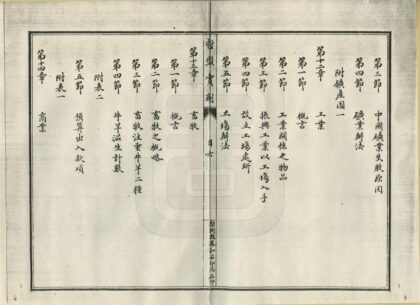 第三節 中國礦業失敗原因
第四節 礦業辦法
附礦產圖一
第十二章 工業
第一節 概言
第二節 工業關係之物品
第三節 振興工業以工場入手
第四節 設立工場處所
第五節 工場辦法
哲盟實劑 目 六
第十三章 畜牧
第一節 概言
第二節 畜牧之概略
第三節 畜牧注重牛羊二種
第四節 牛羊滋生計數
附表二
第五節 預算出入款項
附表一
第十四章 商業